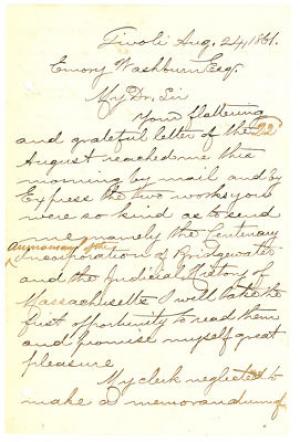 Tivoli Aug. 24, 1861.
Emory Washburn Esq.
My Dr. Sir
Your flattering
and grateful letter of the 22
August reached me this
morning by mail and by
Express the two works you
were so kind as to send
me namely the Centenary
Incorporation of Bridgewater
and the Judicial History of
Massachusetts I will take the
first opportunity to read them
and promise myself great
pleasure
My clerk neglected to
make a memorandum of